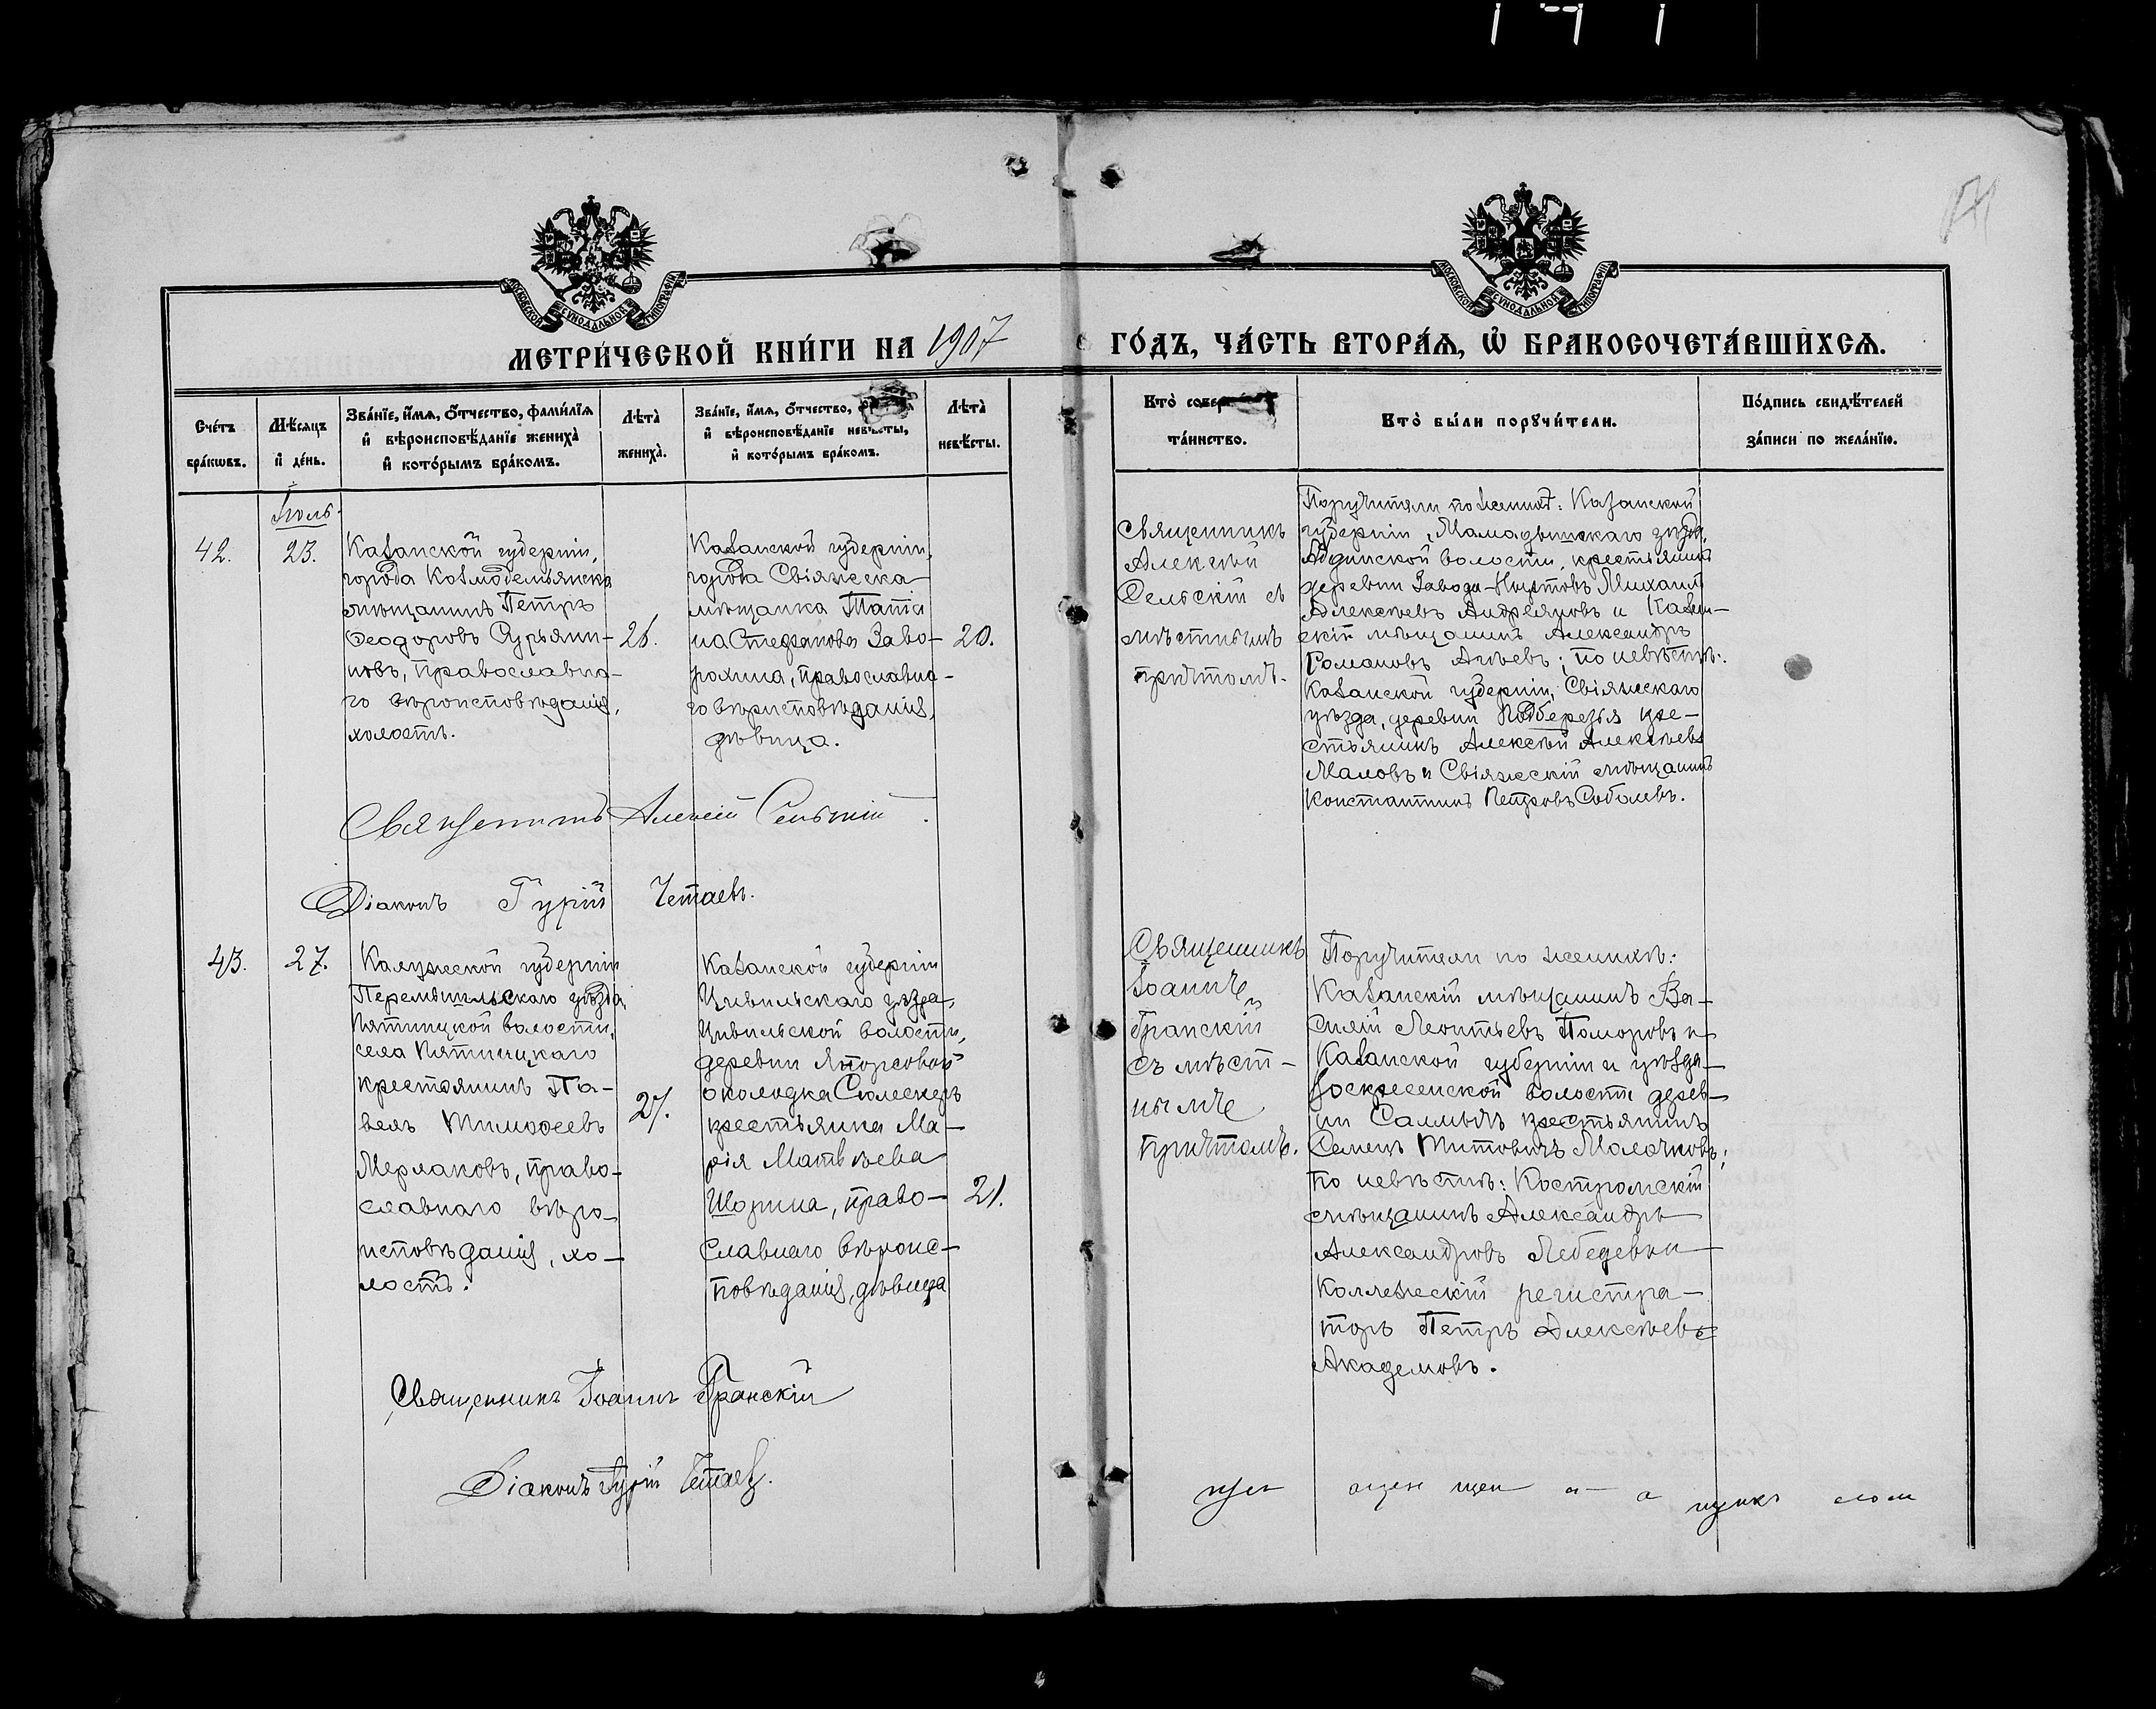 МОСКОВСКОЙ СѴНОДАЛЬНОЙ ТИПОГРАФІИ
МОСКОВСКОЙ СѴНОДАЛЬНОЙ ТИПОГРАФІИ
МЕТРИ́ЧЕСКОЙ КНИ́ГИ НА 1907 ГО́ДЪ, ЧА́СТЬ ВТОРА́Ѧ, Ѽ БРАКОСОЧЕТА́ВШИХСѦ.
Сче́тъ
бра́кѡвъ.
Мѣ́сяцъ
и҆ де́нь.
Зва́нїе, и҆́мѧ, ѻ҆́тчество, фами́лїѧ
и҆ вѣроисповѣ́данїе жениха̀
и҆ кото́рымъ бра́комъ.
Лѣ́та
жениха̀.
Зва́нїе, и҆́мѧ, ѻ҆́тчество,
и҆ вѣроисповѣ́данїе невѣ́сты,
и҆ кото́рымъ бра́комъ.
Лѣ́та
невѣ́сты.
Кто̀
та́инство.
Кто̀ бы́ли порꙋчи́тели.
По́дпись свидѣ́телей
за́писи по жела́нїю.
Іюль
42.
23.
Казанской губерніи,
города Козмодемьянска
мѣщанинъ Петръ
Ѳеодоровъ
новъ, православна-
го вѣроисповѣданія,
холостъ.
26.
Казанской губерніи,
города Свіяжска
мѣщанка Татіа
на Стефанова Заво-
рохина, православна-
го вѣрисповѣданія,
дѣвица.
20.
Священникъ
Алексѣй
Сельскій съ
мѣстнымъ
причтомъ.
Поручители по женихѣ: Казанской
губерніи, Мамадышскаго уѣзда,
волости, крестьянинъ
деревни Михаилъ
Алексѣевъ Андреяновъ и Казан-
скій мѣщанинъ Александръ
Романовъ Агѣевъ; по невѣстѣ:
Казанской губерніи, Свіяжскаго
уѣзда, деревни Подберезья кре-
стьянинъ Алексѣй Алексѣевъ
Маловъ и Свіяжскій мѣщанинъ
Константинъ Петровъ Соболевъ.
Священникъ Алексѣй Сельскій.
Діаконъ Гурій Четаевъ.
43.
27.
Калужской губерніи
Перемышльскаго уѣзда,
Пятницкой волости,
села Пятницкаго
крестьянинъ Па-
велъ Тимоѳеевъ
Мерлаковъ, право-
славнаго вѣро-
исповѣданія, хо-
лостъ.
27.
Казанской губерніи
Цивильскаго уѣзда,
Цивильской волости,
деревни
околодка
крестьянка Ма-
рія Матвѣева
Шорина, право-
славнаго вѣроис-
повѣданія, дѣвица
21.
Священникъ
Іоаннъ
Гранскій
съ мѣст-
нымъ
причтомъ.
Поручители по женихѣ:
Казанскій мѣщанинъ Ва-
силій Леонтьевъ Поморовъ и
Казанской губерніи и уѣзда
Воскресенской волости дерев-
ни крестьянинъ
Семенъ Титовичъ Молочковъ;
по невѣстѣ: Костромскій
мѣщанинъ Александръ
Александровъ Лебедевъ и
Коллежскій регистра-
торъ Петръ Алексѣевъ
Академовъ.
Священникъ Іоаннъ Гранскій
Діаконъ Гурій Четаевъ.